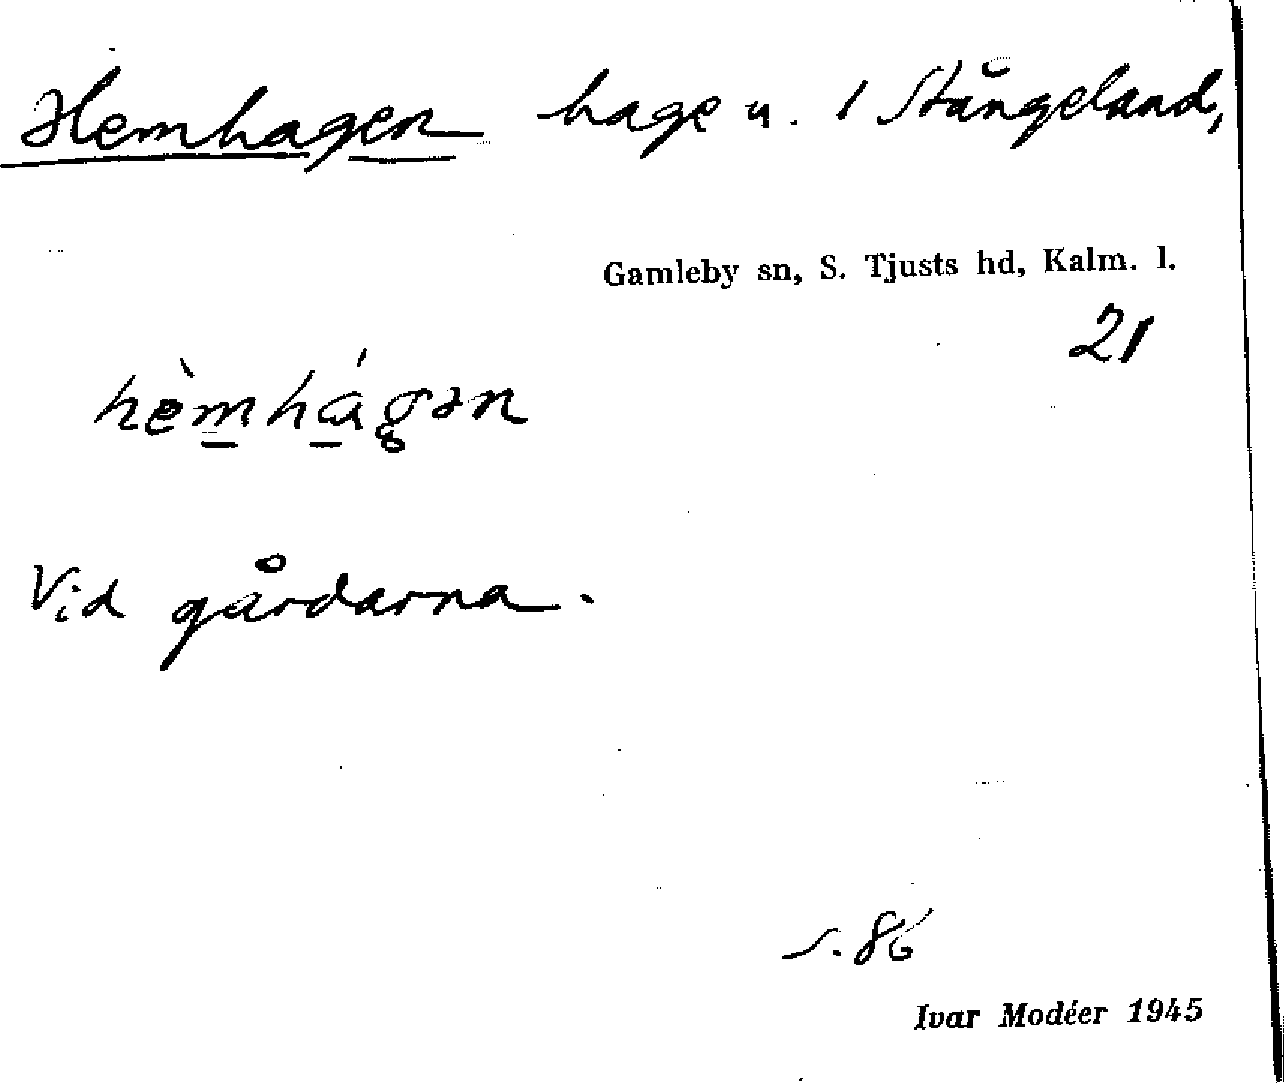 Hemhagen hage u. 1 Stångeland,
Gamleby sn, S. Tjusts hd, Kalm. l.
21
hèmhágən
Vid gårdarna.
s. 86
Ivar Modéer 1945